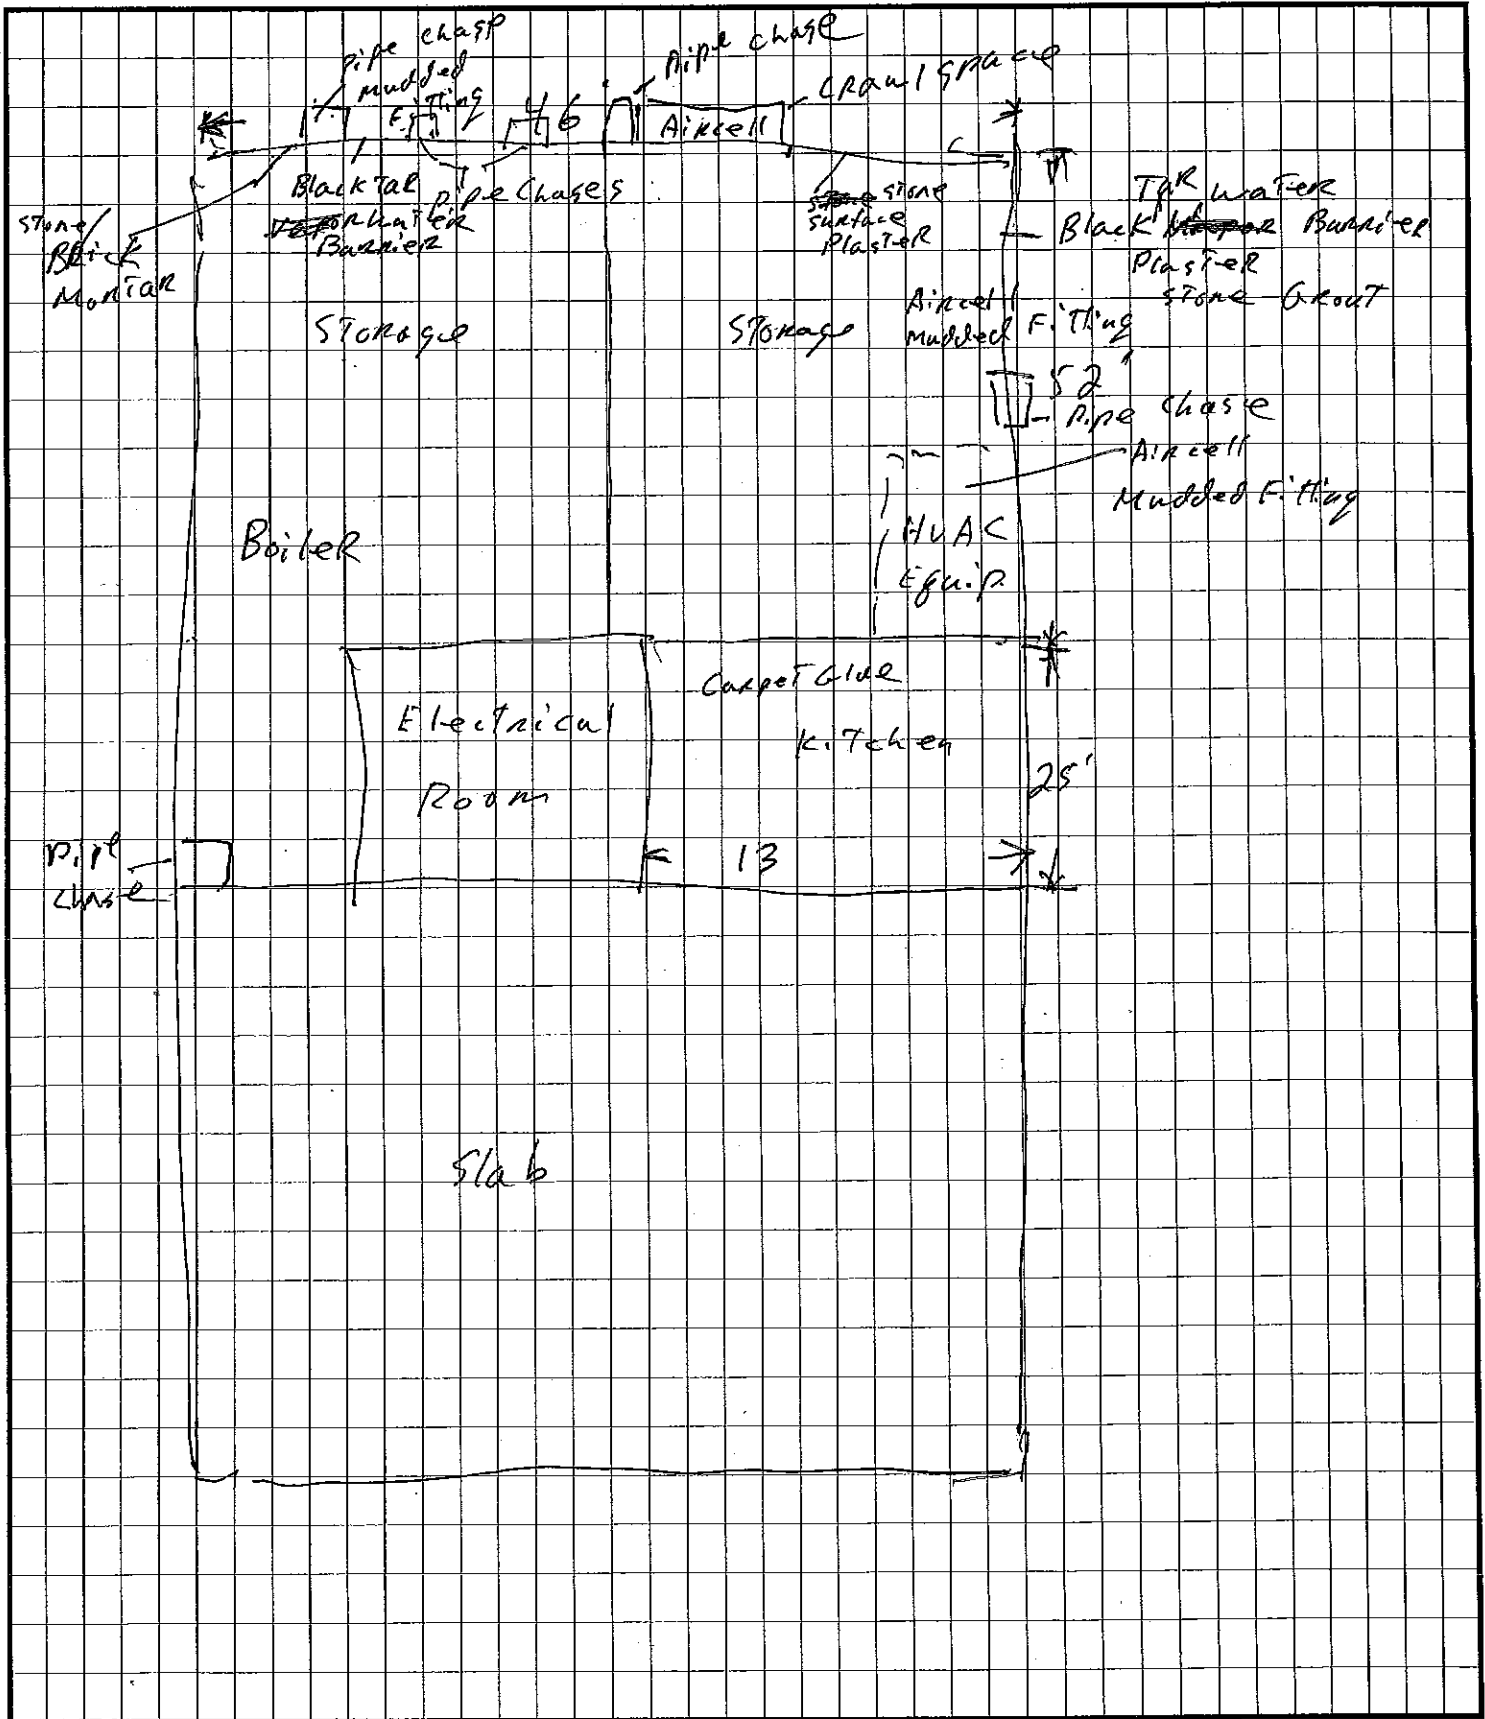 Pipe chase
mudded
Fitting
46
Pipe chase
Crawl space
Aircell
Stone/
Brick
Mortar
Black Tar
Water
Barrier
Pipe Chases
stone
surface
Plaster
Tar water
Black Barrier
Plaster
Stone Grout
Storage
Storage
Aircell
Mudded Fitting
52'
Pipe Chase
Aircell
Mudded Fitting
Boiler
HVAC
Equip.
Electrical
Room
Carpet Glue
Kitchen
25'
13
Pipe
chase
Slab